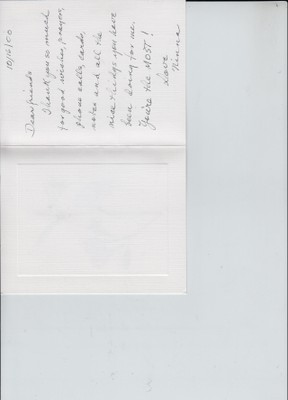 10/16/00
Dear friends
Thank you so much
for good wishes, prayers,
phone calls, cards,
notes and all the
nice things you have
been doing for me.
You're the MOST!
Love